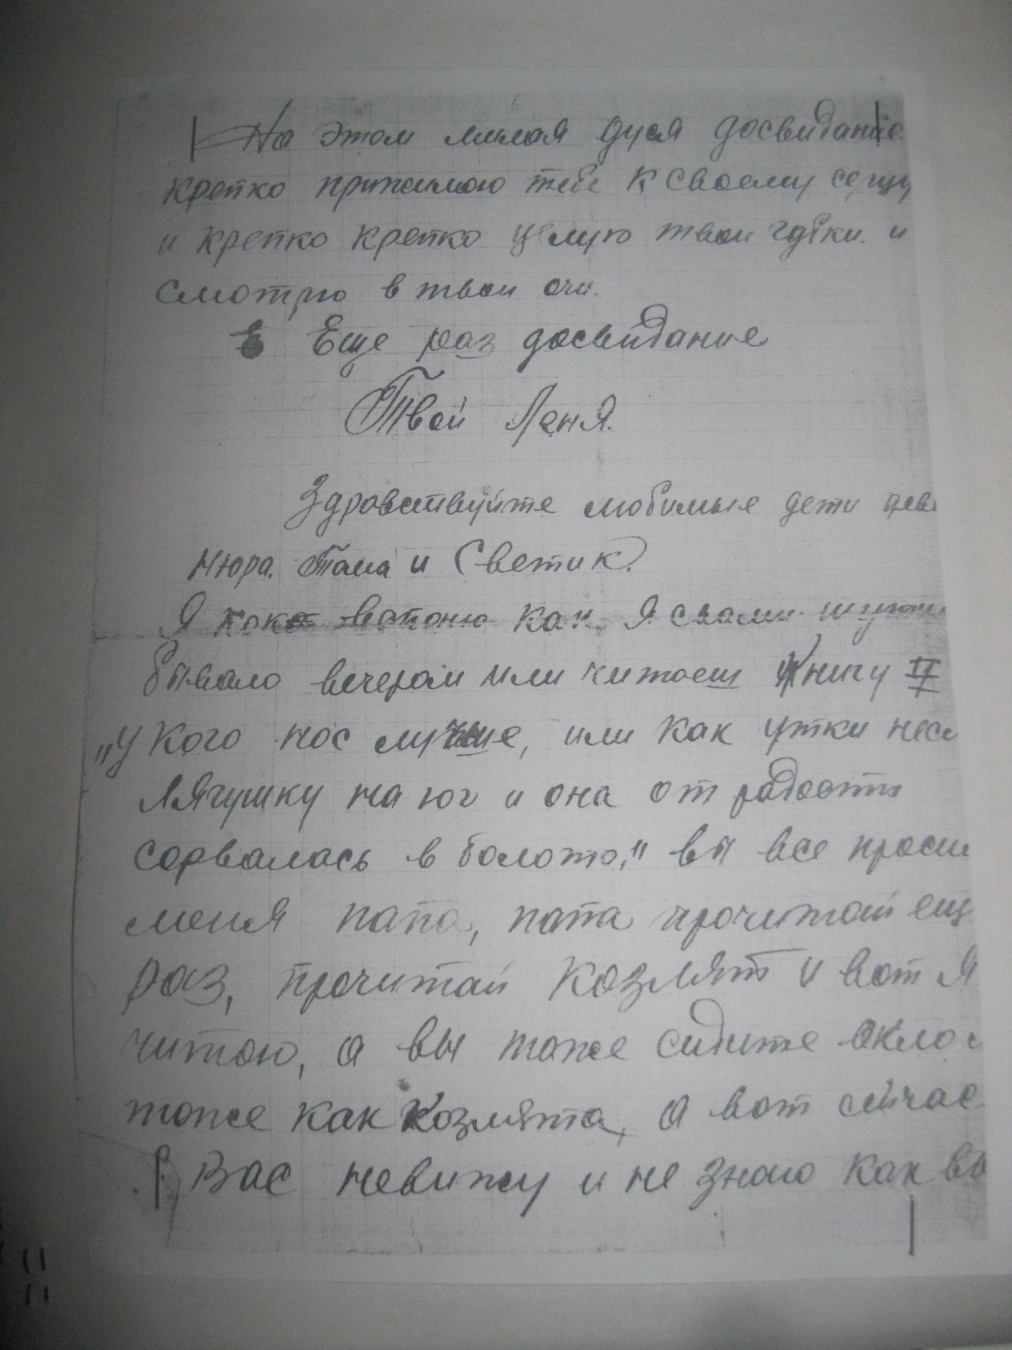 На этом милая Дуся досвидание
крепко прижимаю тебе к своему серцу
и крепко крепко целую твои губки и
смотрю в твои очи.
Еще раз досвидание
Твой Леня.
Здравствуйте любимые дети
Нюра. Тома и Светик.
Я как Я с вами
бывало вечером или китаеш Книгу
„У кого нос лучше, или как утки несл
Лягушку на юг и она от радости
сорвалась в болото," вы все проси
меня папа, папа прочитай ещ
раз, прочитай Козлят и вот Я
читаю, а вы тоже сидите около
тоже как Козлята, а вот сичас
Вас невижу и не знаю как вы